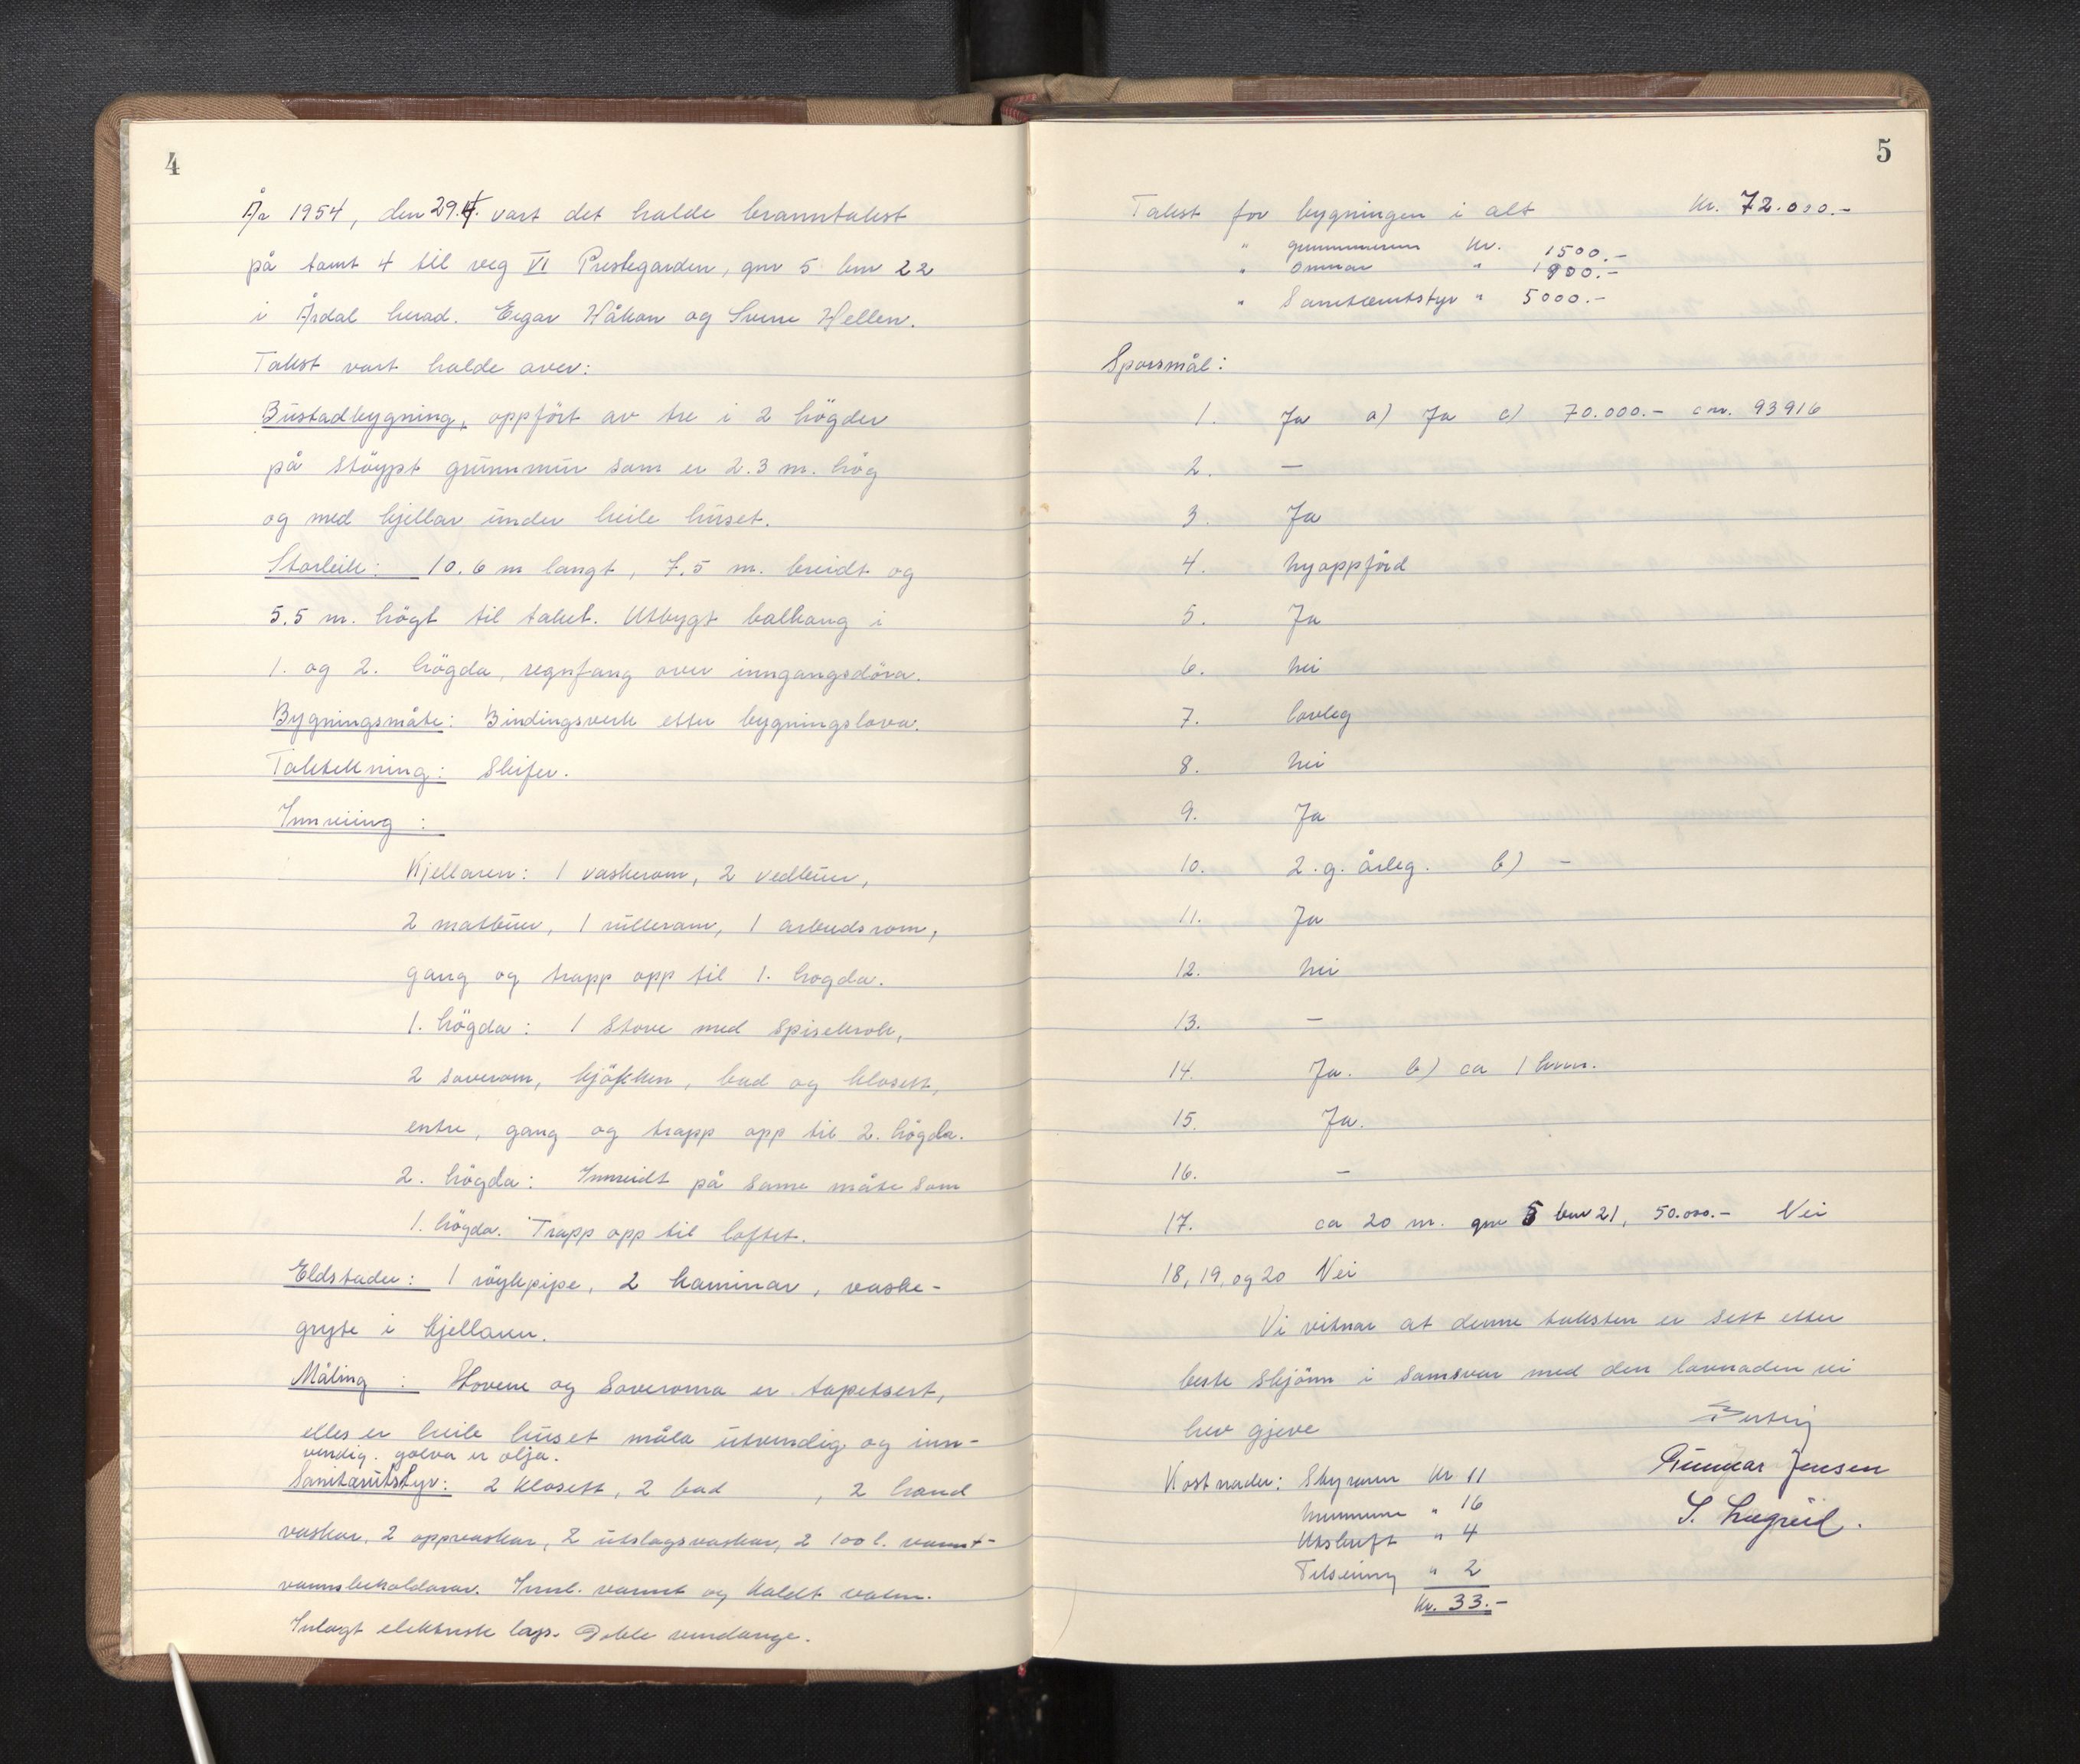 4
År 1954, den 29.4. vart det halde branntakst
på tomt 4 til veg VI Prestegarden, gnr 5 bnr 22
i Årdal herad. Eigar Håkon og Sverre Hellen.
Takst vart halde over:
Bustadbygning, oppført av tre i 2 högder
på stöypt grunnmur som er 2.3 m. hög
og med kjellar under heile huset.
Storleik: 10.6 m langt, 7.5 m. breidt og
5.5 m. högt til taket. Utbygt balkong i
1. og 2. högda, regnfang over inngangsdöra.
Bygningsmåte: Bindingsverk etter bygningslova.
Taktekning: Skifer.
Innreiing :
Kjellaren: 1 vaskerom, 2 vedbuer,
2 matbuer, 1 rullerom, 1 arbeidsrom,
gang og trapp opp til 1. högda.
1. högda: 1 stove med spisekrok,
2 soverom, kjökken, bad og klosett,
entre, gang og trapp opp til 2. högda.
2. högda: Innreidt på same måte som
1. högda. Trapp opp til loftet.
Eldstader: 1 röykpipe, 2 kaminar, vaske-
gryte i kjellaren.
Måling : Stovene og soveroma er tapetsert,
elles er heile huset måla utvendig og inn-
vendig. golva er olja.
Sanitærutstyr: 2 klosett, 2 bad , 2 hand
vaskar, 2 oppvaskar, 2 utslagsvaskar, 2 100 l. varmt-
vannsbeholdarar. Innl. varmt og kaldt vatn.
Inlagt elektrisk lys. Doble vindauge.
5
Takst for bygningen i alt Kr. 72.000.-
" grunnmuren Kr. 1500.-
" omnar " 1900.-
" Sanitærutstyr " 5000.-
Sporsmål:
1. Ja a) Ja c) 70.000.- c nr. 93916
2. —
3. Ja
4. Nyoppförd
5. Ja
6. Nei
7. Lovleg
8. Nei
9. Ja
10. 2. g. årleg. b) –
11. Ja
12. Nei
13. –
14. Ja. b) ca 1 km.
15. Ja.
16. –
17. ca 20 m. gnr 5 bnr 21, 50.000.- Nei
18, 19, og 20 Nei
Vi vitnar at denne taksten er sett etter
beste skjönn i samsvar med den lovnaden vi
hev gjeve
Gunnar Jensen
Kostnader: Styraren Kr 11
S. Lægreid.
" 16
Utskrift " 4
Tilseining " 2
Kr. 33.-